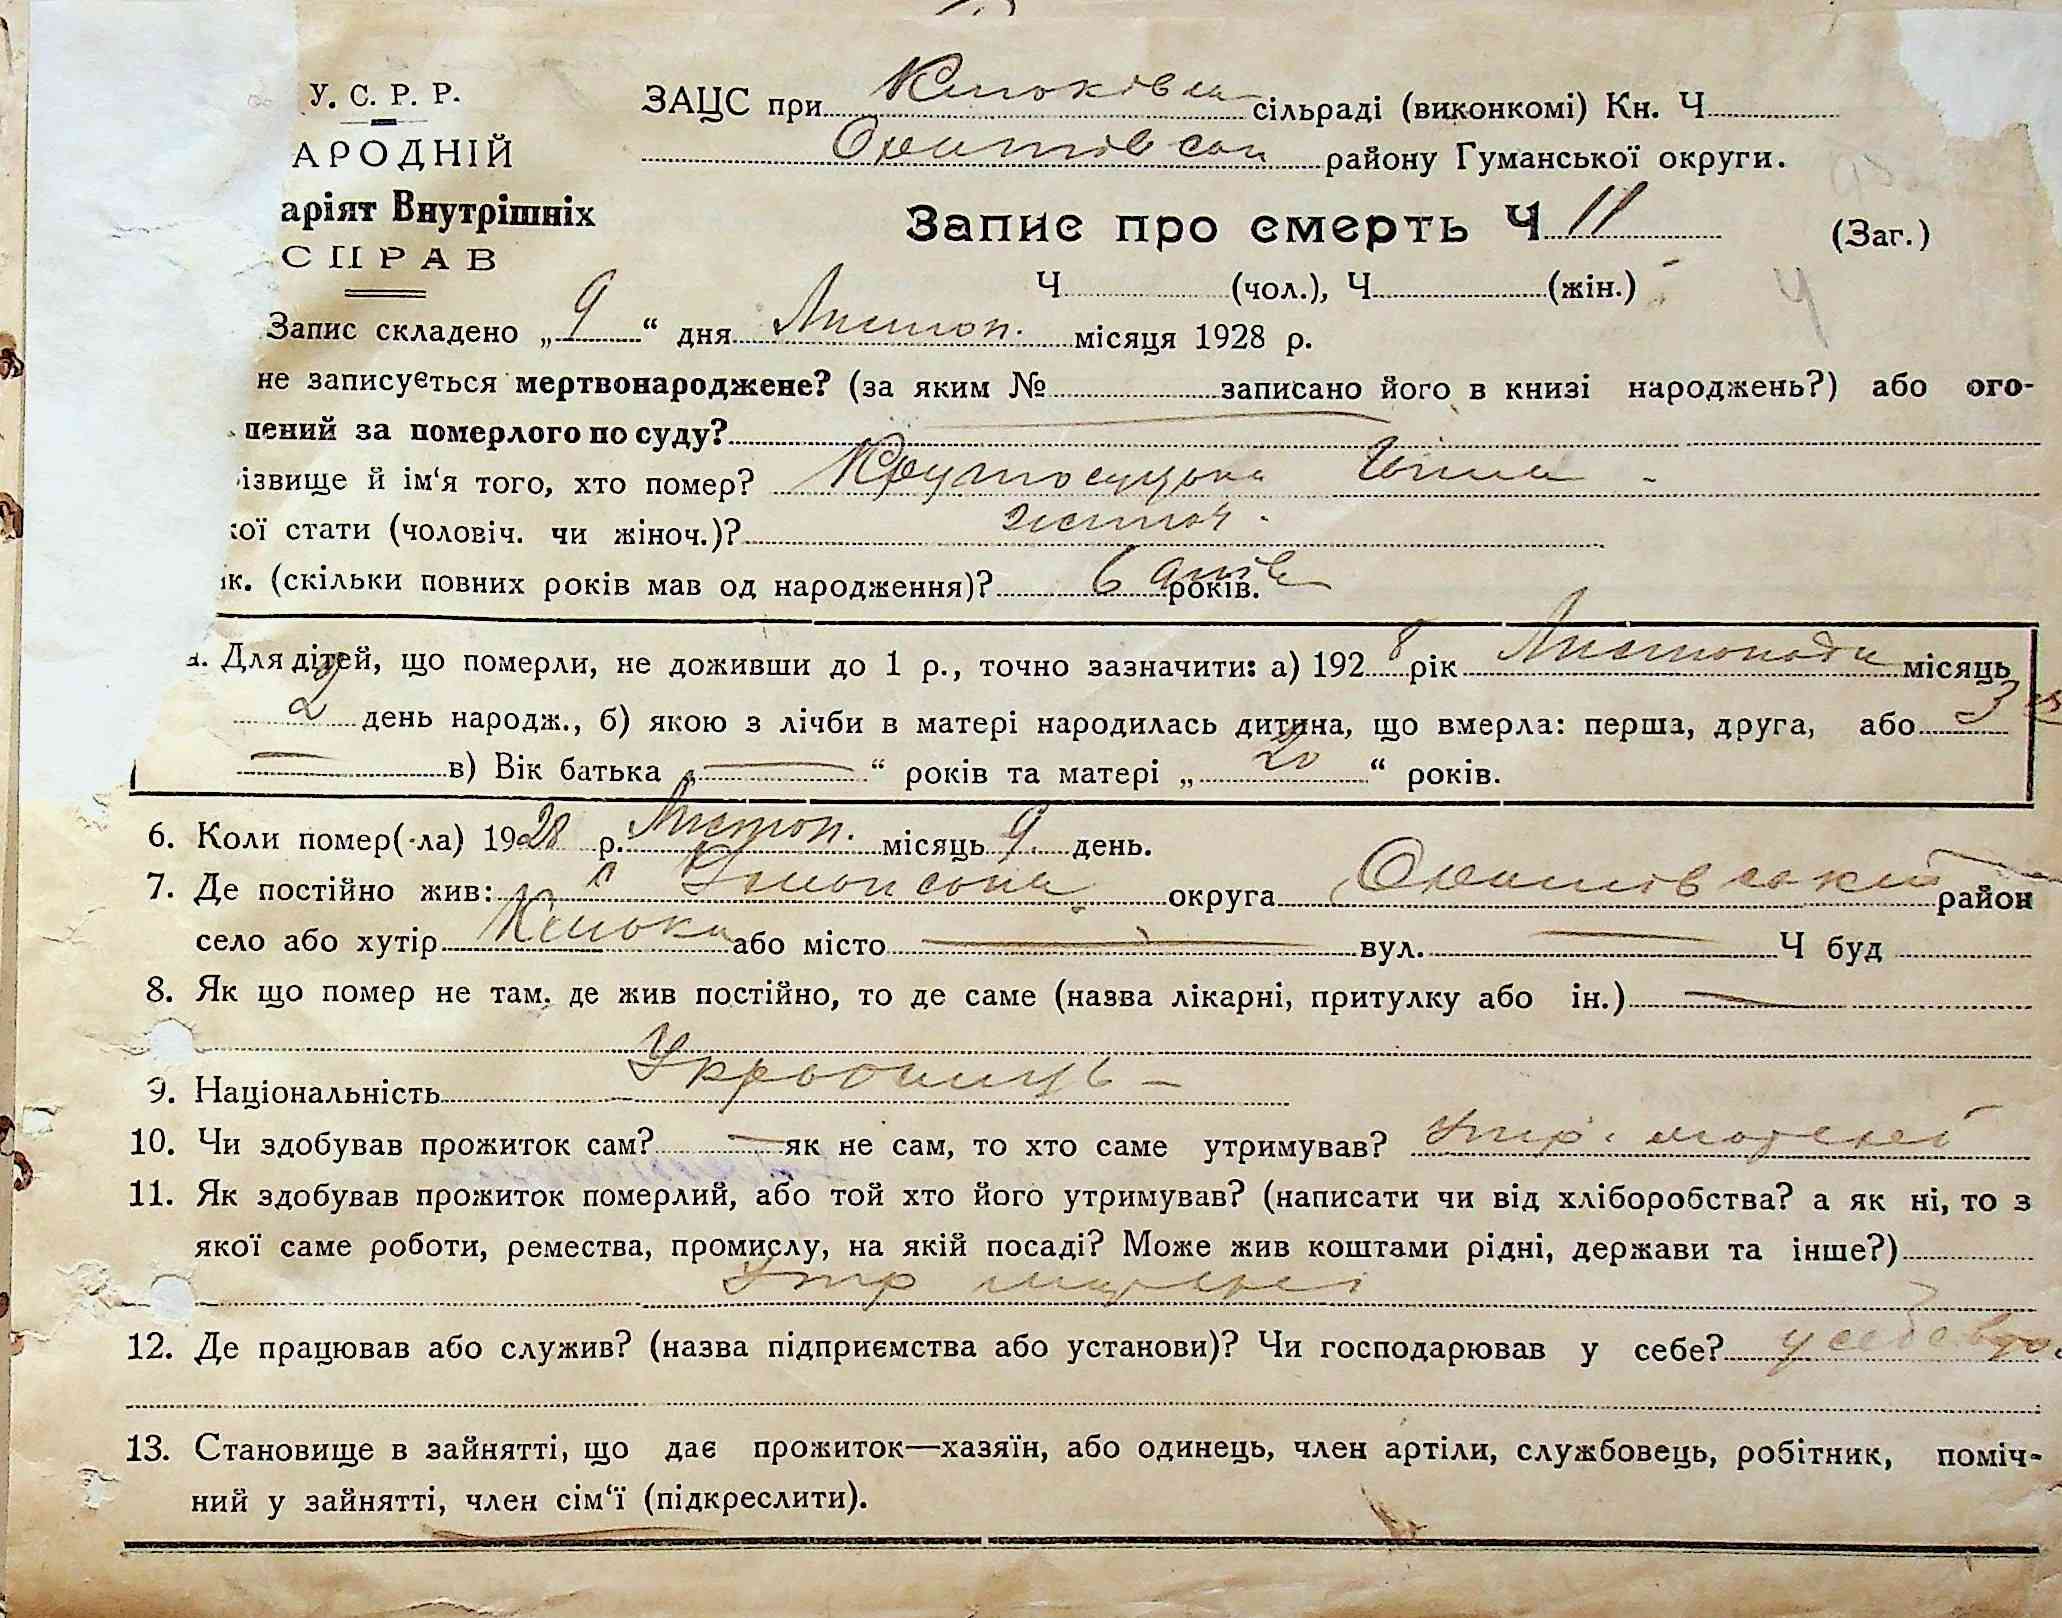 У. С. Р. Р.
АРОДНІЙ
аріят Внутрішніх
СПРАВ
ЗАЦС при сільраді (виконкомі) Кн. Ч
району Гуманської округи.
Запис про смерть Ч 11 (Заг.)
Ч (чол.), Ч (жін.)
Запис складено „ 9 “ дня Листоп. місяця 1928 р.
не записується мертвонароджене? (за яким № записано його в книзі народжень?) або ого-
пений за померлого по суду?
ізвище й ім‘я того, хто помер?
кої стати (чоловіч. чи жіноч.)? жіноч.
ік. (скільки повних років мав од народження)? 6 днів років.
а. Для дітей, що померли, не доживши до 1 р., точно зазначити: а) 192 8 рік Листопада місяць
2 день народж., б) якою з лічби в матері народилась дитина, що вмерла: перша, друга, або 3
в) Вік батька „ — “ років та матері „ 20 “ років.
6. Коли помер(-ла) 1928 р. Листоп. місяць 9 день.
7. Де постійно жив: округа район
село або хутір або місто — вул. — Ч буд
8. Як що помер не там, де жив постійно, то де саме (назва лікарні, притулку або ін.) —
9. Національність
10. Чи здобував прожиток сам? — як не сам, то хто саме утримував? Утр. матері
11. Як здобував прожиток померлий, або той хто його утримував? (написати чи від хліборобства? а як ні, то з
якої саме роботи, ремества, промислу, на якій посаді? Може жив коштами рідні, держави та інше?)
Утр матері
12. Де працював або служив? (назва підприємства або установи)? Чи господарював у себе? у себе
13. Становище в зайнятті, що дає прожиток—хазяїн, або одинець, член артіли, службовець, робітник, поміч-
ний у зайнятті, член сім‘ї (підкреслити).